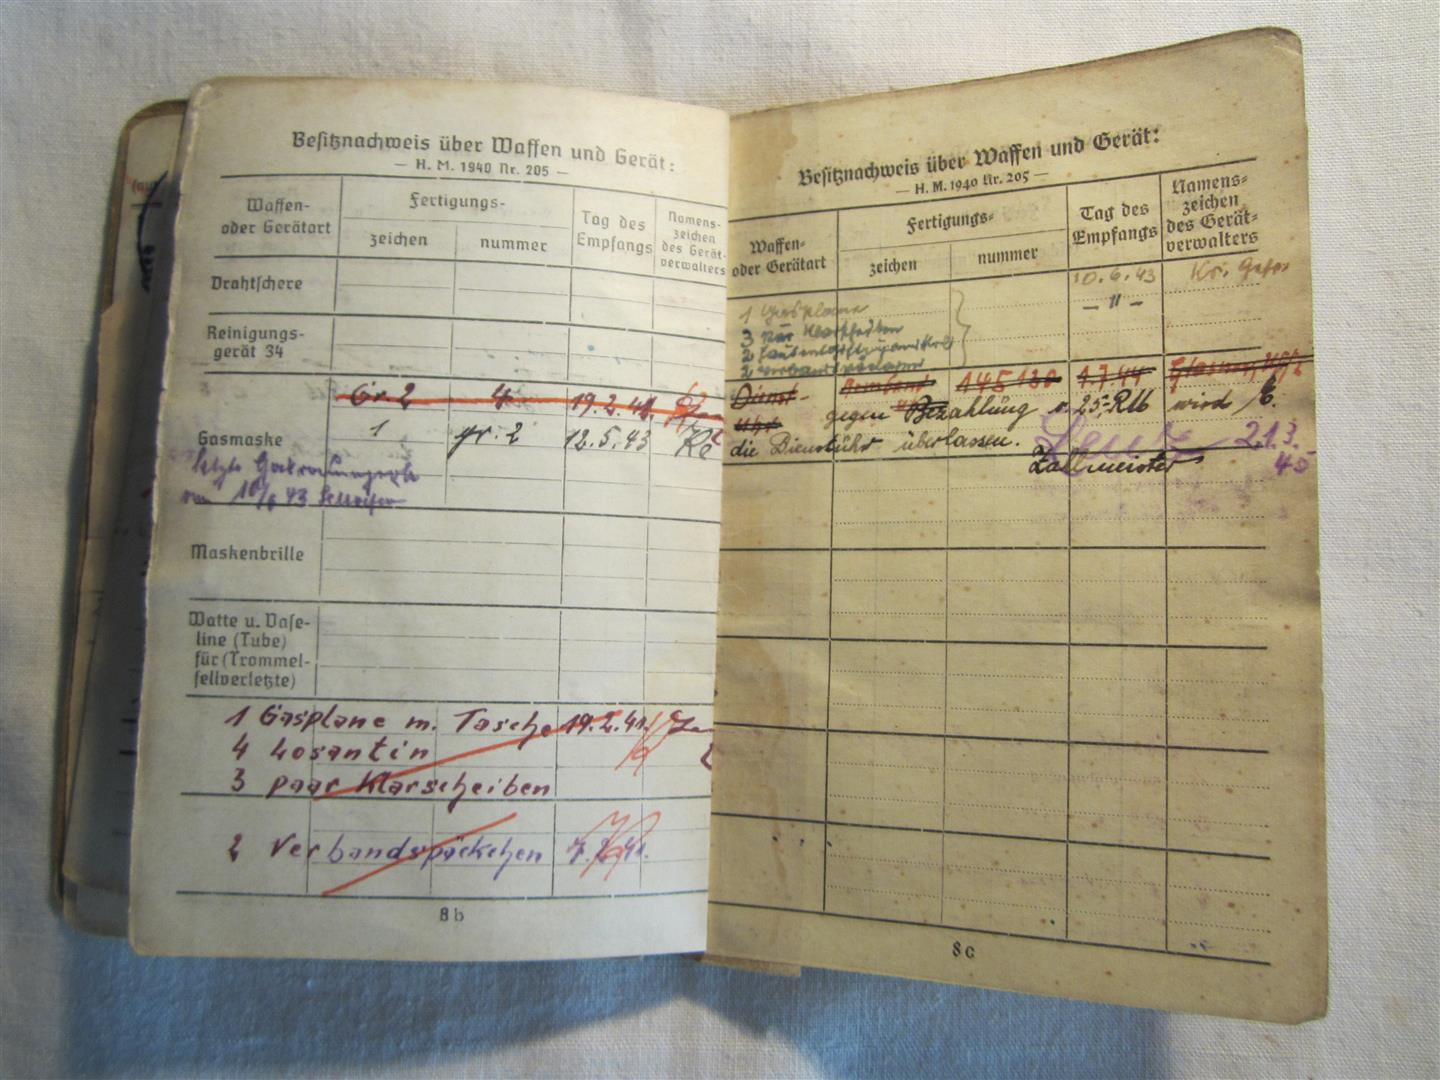 Besitznachweis über Waffen und Gerät:
— H. M. 1940 Nr. 205 —
Waffen-
oder Gerätart
Fertigungs-
zeichen
nummer
Tag des
Empfangs
Namens-
zeichen
des Gerät-
verwalters
Drahtschere
Reinigungs-
gerät 34
Gr. 2 19.2.41.
Gasmaske 1 gr. 2 12.5.43
letzte
43
Maskenbrille
Watte u. Vase-
line (Tube)
für (Trommel-
fellverletzte)
1 Gasplane m. Tasche 19.2.41.
4 Losantin
3 paar Klarscheiben
2 Verbandspäckchen
8 b
Besitznachweis über Waffen und Gerät:
— H. M. 1940 Nr. 205 —
Waffen-
oder Gerätart
Fertigungs-
zeichen
nummer
Tag des
Empfangs
Namens-
zeichen
des Gerät-
verwalters
1 Gasplane 10.6.43
3 — " —
2
2
Dienst- 145130 1.7.44
uhr gegen Bezahlung v. 25,- RM wird
die Dienstuhr überlassen. 21.3.
Zahlmeister 45
8 c